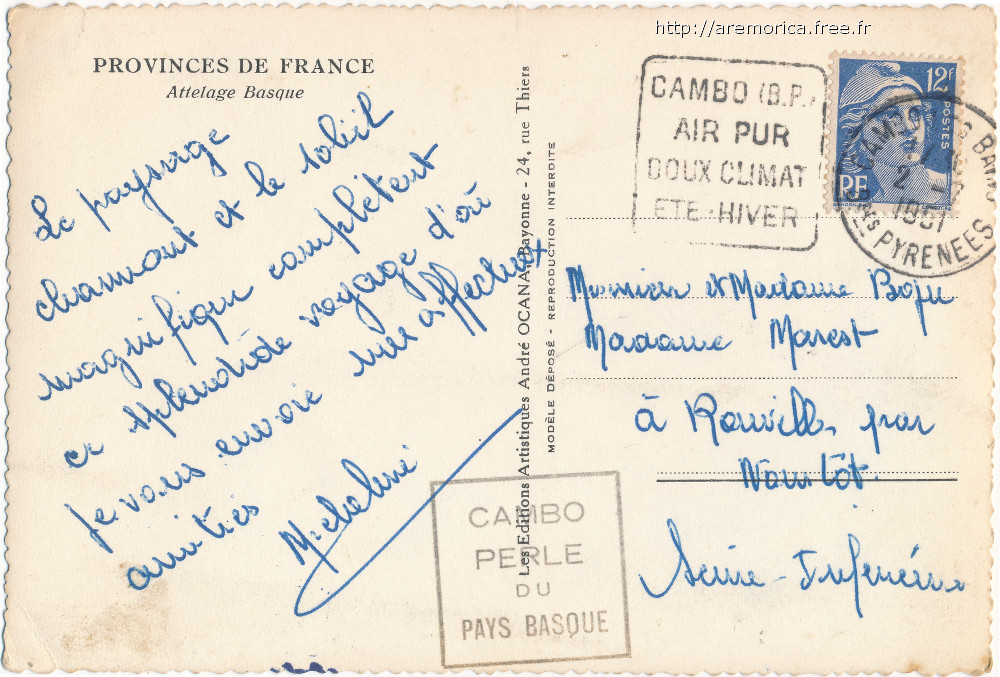 http://aremorica.free.fr
PROVINCES DE FRANCE
Attelage Basque
Le paysage
charmant et le soleil
magnifique complètent
ce splendide voyage d'où
je vous envoie mes affectues
amitiés
Micheline
Les Editions Artistiques André OCANA, Bayonne - 24, rue Thiers
MODÈLE DÉPOSÉ - REPRODUCTION INTERDITE
CAMBO (B.P.)
AIR PUR
DOUX CLIMAT
ETE - HIVER
12F
POSTES
RF
CAMBO LES BAINS
1951
BSES PYRENEES
Monsieur et Madame
Madame Marest
à Rouville par
Nointôt
Seine-Inférieure
CAMBO
PERLE
DU
PAYS BASQUE